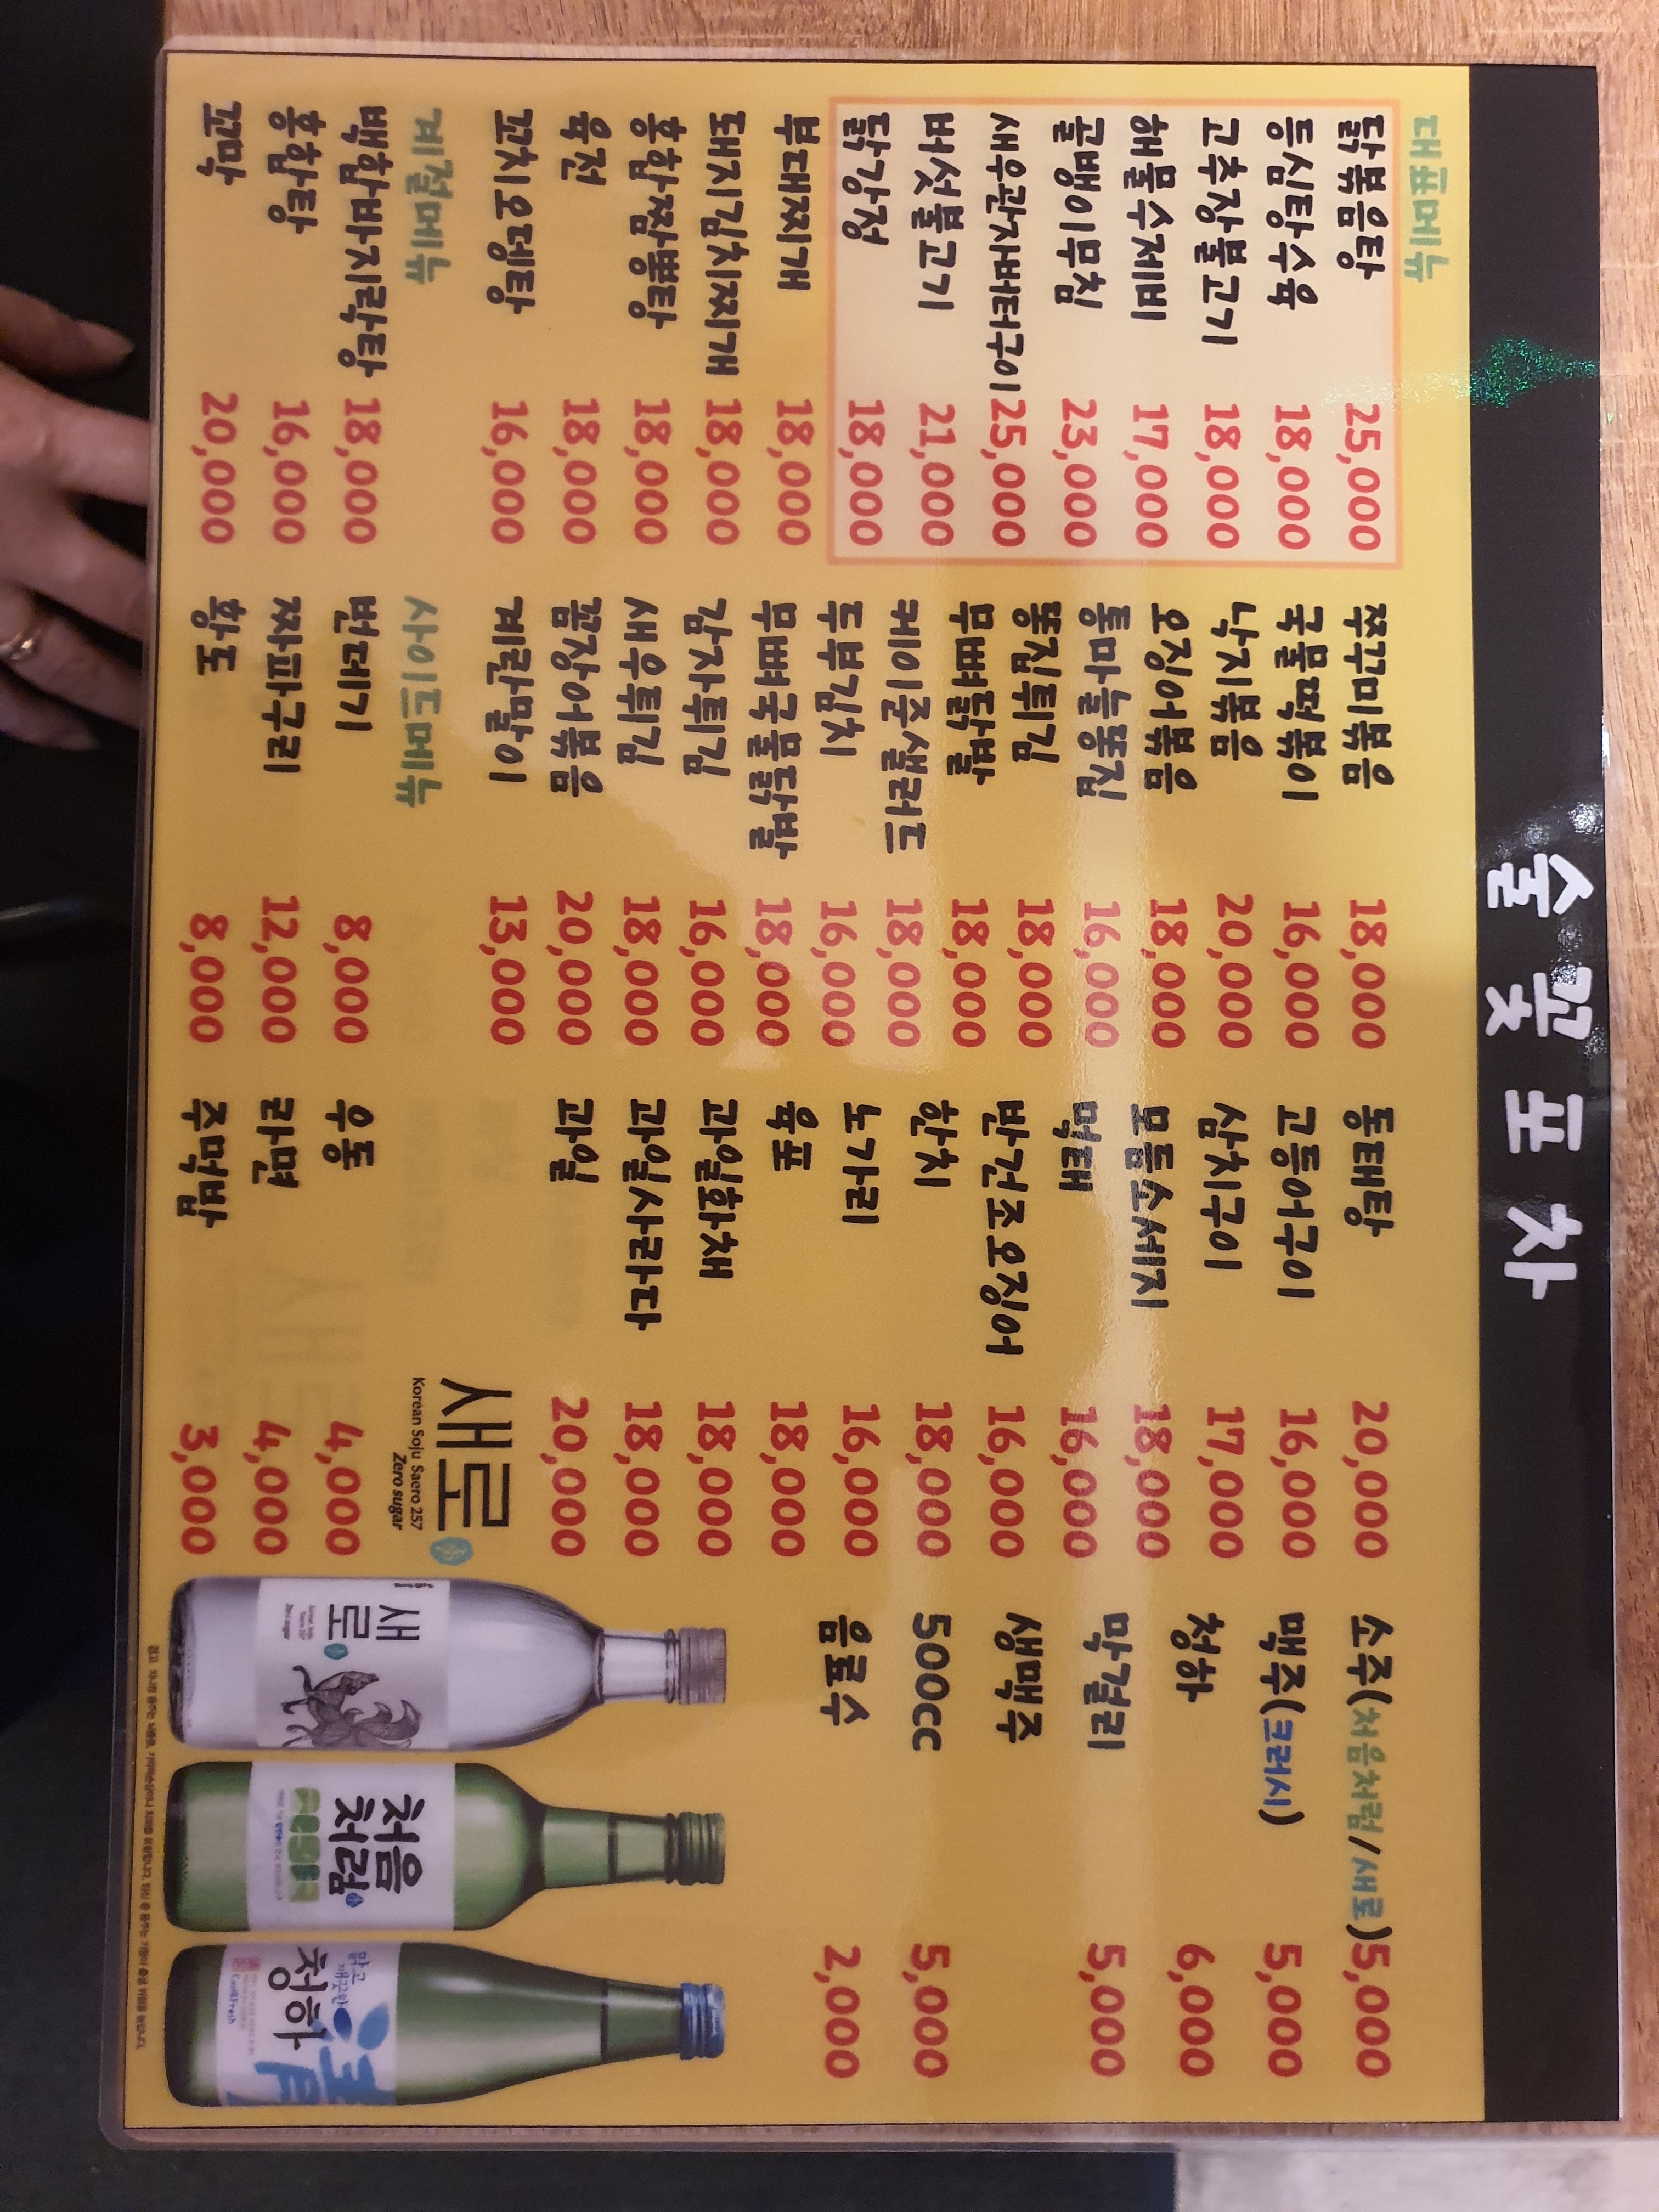 술꽃포차
대표메뉴
닭볶음탕 25,000
등심탕수육 18,000
고추장불고기 18,000
해물수제비 17,000
골뱅이무침 23,000
새우관자버터구이 25,000
버섯불고기 21,000
닭강정 18,000
부대찌개 18,000
돼지김치찌개 18,000
홍합짬뽕탕 18,000
육전 18,000
꼬치오뎅탕 16,000
계절메뉴
백합바지락탕 18,000
홍합탕 16,000
꼬막 20,000
쭈꾸미볶음 18,000
국물떡볶이 16,000
낙지볶음 20,000
오징어볶음 18,000
통마늘똥집 16,000
똥집튀김 18,000
무뼈닭발 18,000
케이준샐러드 18,000
두부김치 16,000
무뼈국물닭발 18,000
감자튀김 16,000
새우튀김 18,000
꼼장어볶음 20,000
계란말이 13,000
사이드메뉴
번데기 8,000
짜파구리 12,000
황도 8,000
동태탕 20,000
고등어구이 16,000
삼치구이 17,000
모듬소세지 18,000
먹태 16,000
반건조오징어 16,000
한치 18,000
노가리 16,000
육포 18,000
과일화채 18,000
과일사라다 18,000
과일 20,000
새로
Korean Soju Saero 257
Zero sugar
우동 4,000
라면 4,000
주먹밥 3,000
소주(처음처럼/새로) 5,000
맥주(크러시) 5,000
청하 6,000
막걸리 5,000
생맥주
500cc 5,000
음료수 2,000
새로
Zero sugar
처음
처럼
맑고
깨끗한
청하